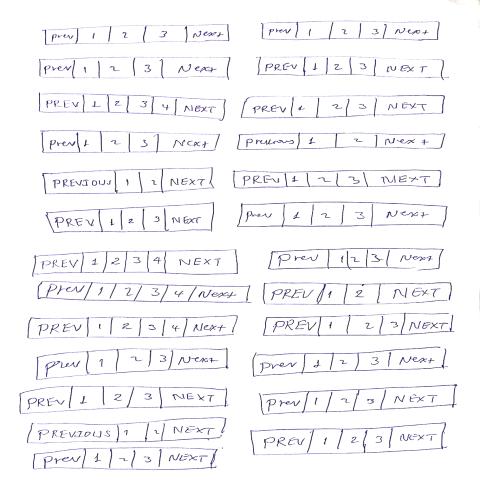 prev 1 2 3 Next
prev 1 2 3 Next
prev 1 2 3 Next
PREV 1 2 3 NEXT
PREV 1 2 3 4 NEXT
PREV 1 2 3 NEXT
prev 1 2 3 Next
previous 1 2 Next
PREVIOUS 1 2 NEXT
PREV 1 2 3 NEXT
PREV 1 2 3 NEXT
prev 1 2 3 Next
PREV 1 2 3 4 NEXT
prev 1 2 3 Next
prev 1 2 3 4 NEXT
PREV 1 2 NEXT
PREV 1 2 3 4 Next
PREV 1 2 3 NEXT
prev 1 2 3 Next
prev 1 2 3 Next
PREV 1 2 3 NEXT
prev 1 2 3 NEXT
PREVIOUS 1 2 NEXT
PREV 1 2 3 NEXT
prev 1 2 3 NEXT